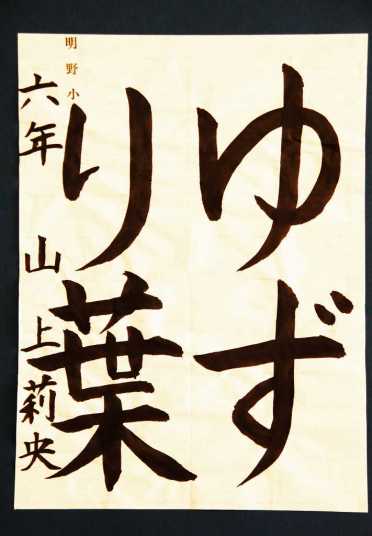 ゆず
り葉
明野小
六年 山上莉央